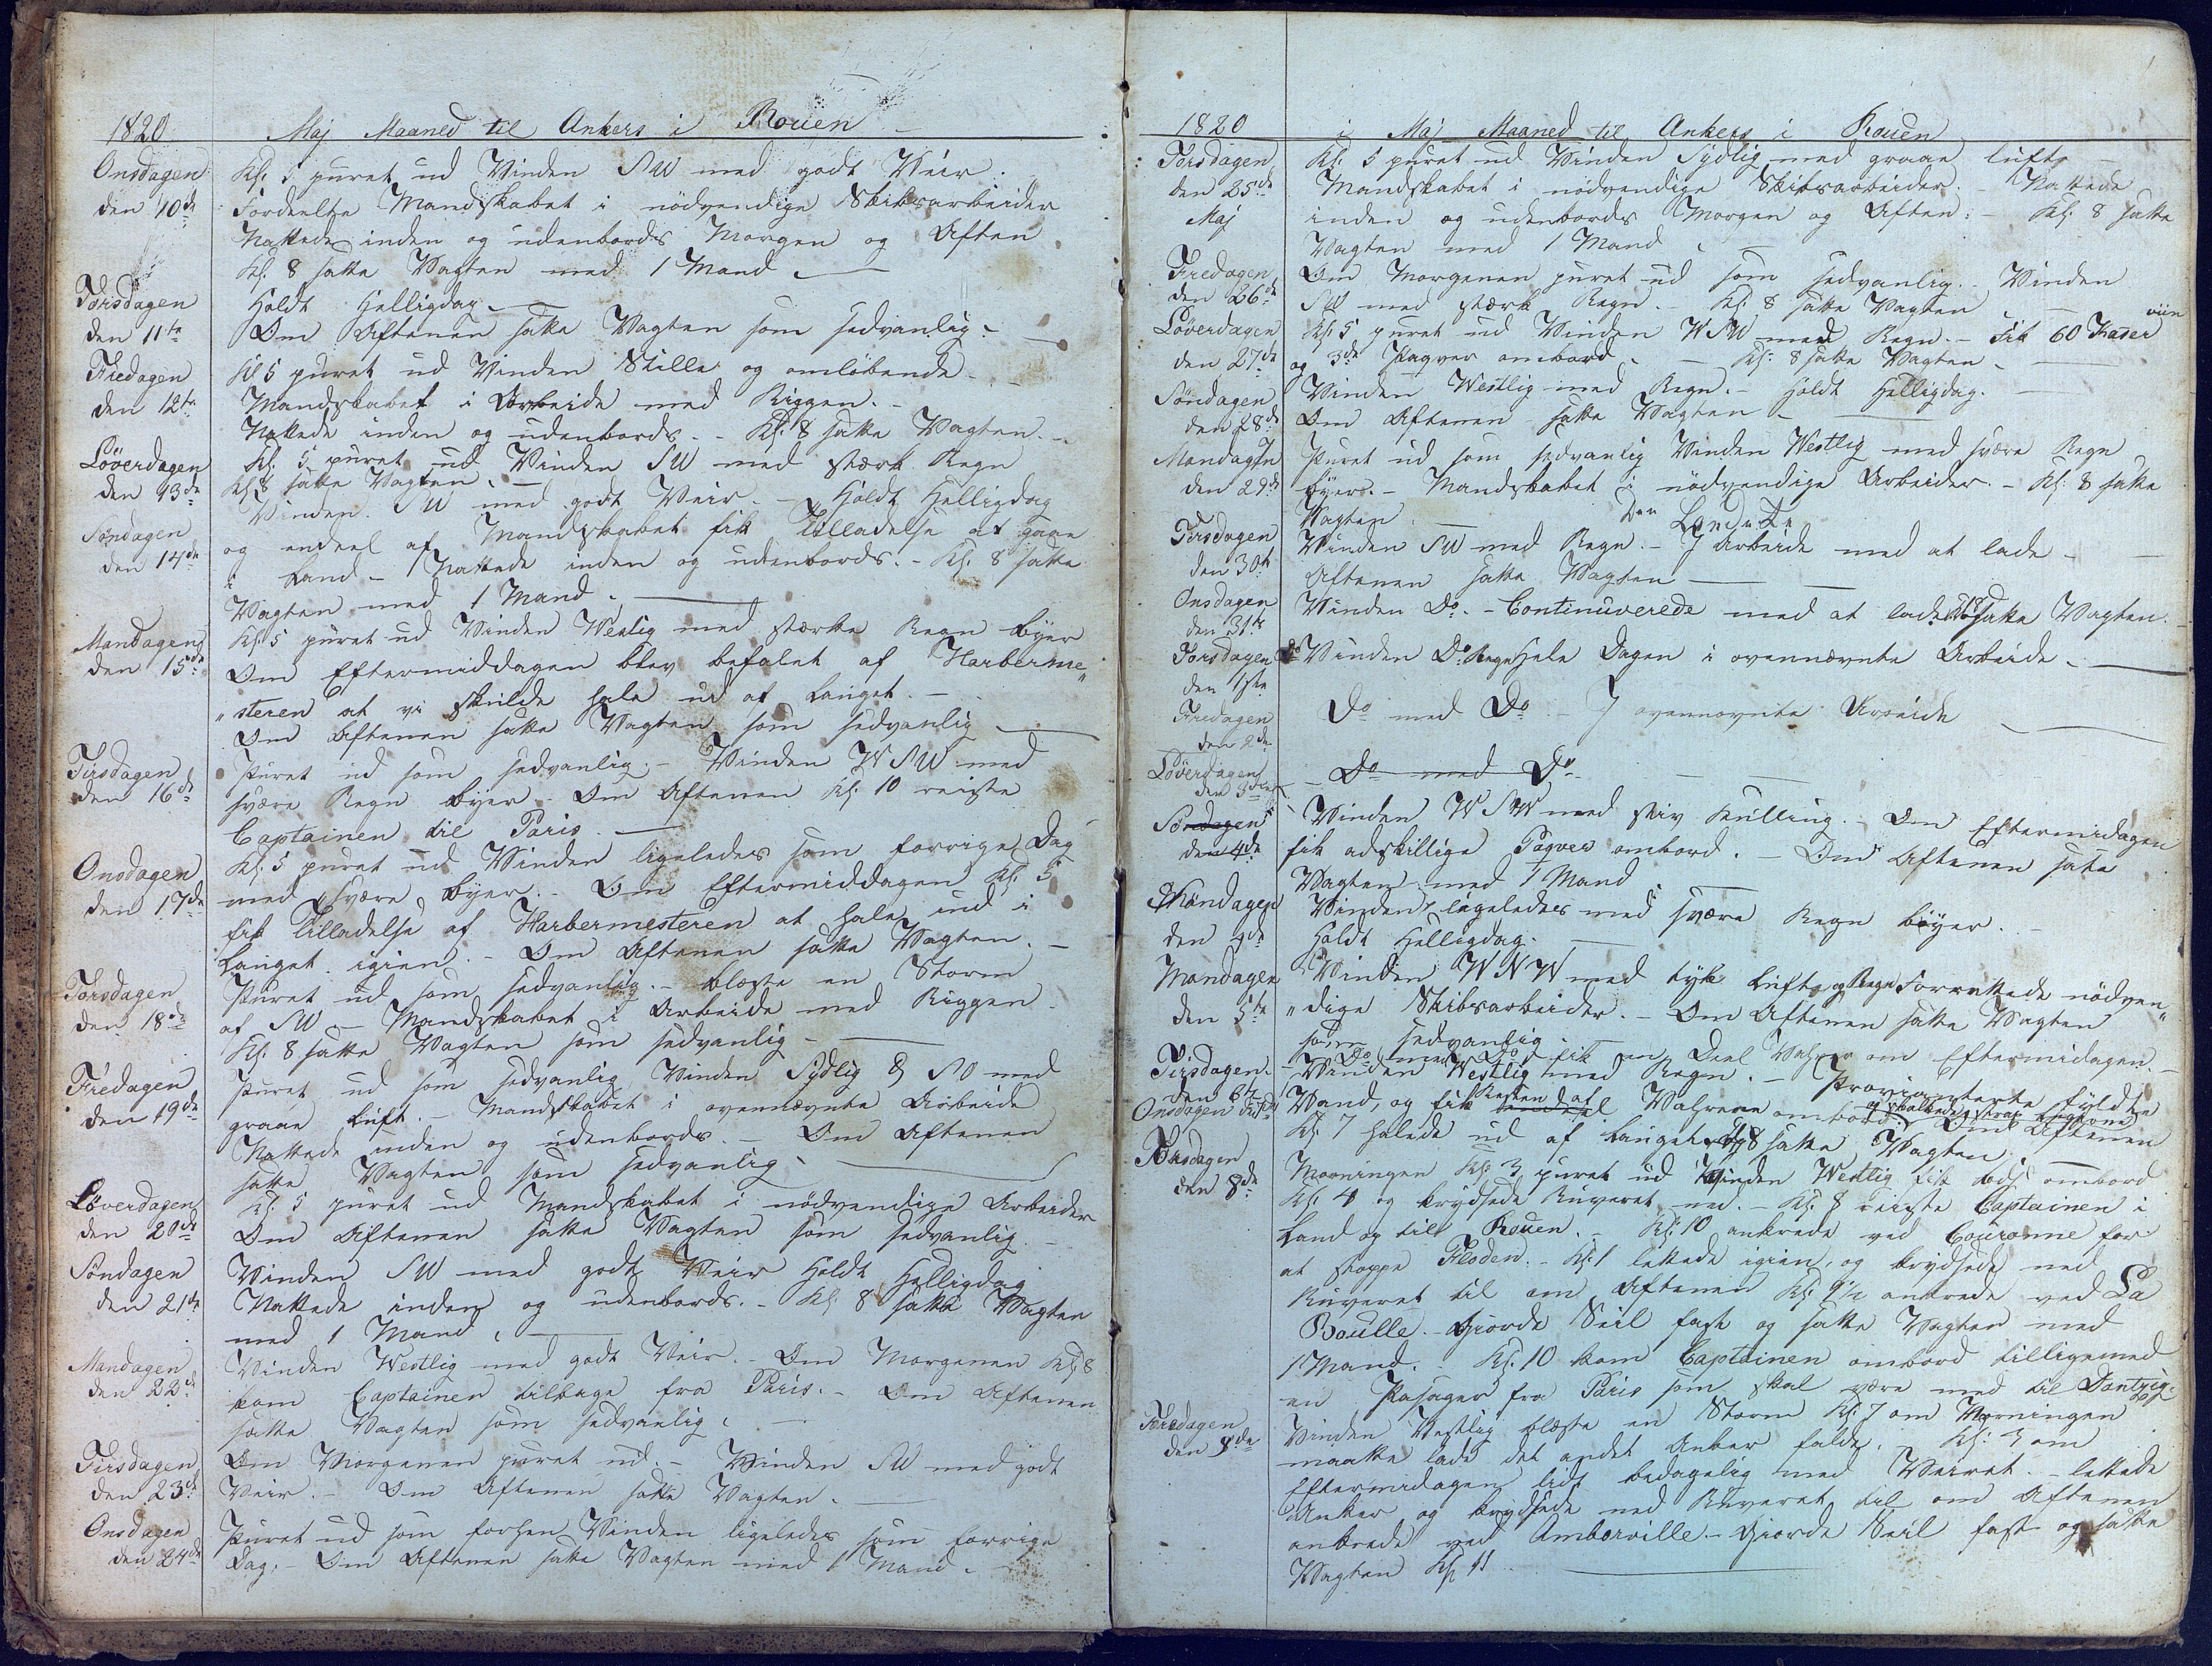 1820
Maj Maaned til Ankers i Rouen
Onsdagen
den 10de
Kl: 5 puret ud Vinden SW med godt Veir.
Fordeelte Mandskabet i nödvendige Skibsarbeider
Nattede inden og udenbords Morgen og Aften
Kl: 8 satte Vagten med 1 Mand.
Torsdagen
den 11te
Holdt Helligdag
Om Aftenen satte Vagten som sedvanlig.
Fredagen
den 12te
Kl 5 puret ud Vinden Stille og omlöbende.
Mandskabet i Arbeide med Riggen.
Nattede inden og udenbords. - Kl: 8 satte Vagten.
Löverdagen
den 13de
Kl: 5 puret ud Vinden SW med stærk Regn
Kl: 8 satte Vagten.
Söndagen
den 14de
Vinden SW med godt Veir. - Holdt Helligdag
og endeel af Mandskabet fik Tilladelse at gaae
i Land - Nattede inden og udenbords. - Kl: 8 satte
Vagten med 1 Mand.
Mandagen
den 15de
Kl: 5 puret ud Vinden Westlig med stærke Regn Byer
Om Eftermiddagen blev befalet af Harberme„
„steren at vi skulde hale ud af Lauget.
Om Aftenen satte Vagten som sedvanlig
Tirsdagen
den 16de
Puret ud som sedvanlig. - Vinden WSW med
svære Regn Byer. Om Aftenen Kl: 10 reiste
Captainen til Paris.
Onsdagen
den 17de
Kl: 5 puret ud Vinden ligeledes som forrige Dag
med svære Byer. - Om Eftermiddagen Kl: 5
fik Tilladelse af Harbermesteren at hale ind i
Lauget igien. - Om Aftenen satte Vagten.
Torsdagen
den 18de
Puret ud som sedvanlig. - blæste en Storm
af SW - Mandskabet i Arbeide med Riggen
Kl: 8 satte Vagten som sedvanlig
Fredagen
den 19de
Puret ud som sedvanlig Vinden Sydlig & SO med
graae Luft. - Mandskabet i ovennævnte Arbeide
Nattede inden og udenbords. - Om Aftenen
satte Vagten som sedvanlig
Löverdagen
den 20de
Kl: 5 puret ud Mandskabet i nödvendige Arbeider
Om Aftenen satte Vagten som sedvanlig
Söndagen
den 21de
Vinden SW med godt Veir Holdt Helligdag
Nattede inden og udenbords. - Kl: 8 satte Vagten
med 1 Mand.
Mandagen
den 22de
Vinden Westlig med godt Veir. - Om Morgenen Kl: 8
kom Captainen tilbage fra Paris. - Om Aftenen
satte Vagten som sedvanlig.
Tirsdagen
den 23de
Om Morgenen puret ud. - Vinden SW med godt
Veir. - Om Aftenen satte Vagten.
Onsdagen
den 24de
Puret ud som forhen Vinden ligeledes som forrige
Dag. - Om Aftenen satte Vagten med 1 Mand.
1820
i Maj Maaned til Ankers i Rouen
Torsdagen
den 25de
Maj
Kl: 5 puret ud Vinden Sydlig med graae Luft
Mandskabet i nödvendige Skibsarbeider. - Nattede
inden og udenbords Morgen og Aften. - Kl: 8 satte
Vagten med 1 Mand
Fredagen
den 26de
Om Morgenen puret ud som sedvanlig. - Vinden
SW med stærk Regn. - Kl: 8 satte Vagten
Löverdagen
den 27de
Kl: 5 puret ud Vinden WSW med Regn. - Fik 60 Kaser viin
og 3de Paqver ombord. - Kl: 8 satte Vagten
Söndagen
den 28de
Vinden Westlig med Regn. - Holdt Helligdag.
Om Aftenen satte Vagten
Mandagen
den 29de
Puret ud som sedvanlig Vinden Westlig med svære Regn
Byer. - Mandskabet i nödvendige Arbeider. - Kl: 8 satte
Vagten
Tirsdagen
den 30te
Vinden SW med Regn. - I Arbeide med at lade -
Aftenen satte Vagten
Onsdagen
den 31te
Vinden Do. - Continuverede med at lade satte Vagten.
Torsdagen
den 1ste
Vinden Do Regn Hele Dagen i ovennævnte Arbeide
Fredagen
den 2de
Do med Do - I ovennævnte Arbeide
Löverdagen
den 3die
Do med Do
Söndagen
den 4de
Vinden WSW med stiv Kulling. - Om Eftermidagen
fik adskillige Paqver ombord. - Om Aftenen satte
Vagten med 1 Mand
den 4de
Vinden ligeledes med svære Regn Böyer.
Holdt Helligdag.
Mandagen
den 5te
Vinden WNW med tyk Luft og Regn Forrettede nödven„
„dige Skibsarbeider. - Om Aftenen satte Vagten
som sedvanlig.
Tirsdagen
den 6te
Do med Do fik en Deel om Eftermidagen.
Onsdagen
Vinden Westlig med Regn. - Provianterte fyldte
Vand, og fik Resten af ombord. - Om Aftenen
Kl: 7 halede ud af Lauget. Kl: 8 satte Vagten.
Torsdagen
den 8de
Morningen Kl: 3 puret ud Vinden Westlig fik Lods ombord
Kl: 4 og krydsede Ruveret ned. - Kl: 8 reiste Captainen i
Land og til Rouen. - Kl: 10 ankrede ved Couronne for
at stoppe Floden. - Kl: 1 lettede igien, og krydsede ned
Ruveret til om Aftenen Kl 9½ ankrede ved La
Boulle. - Giorde Seil fast og satte Vagten med
1 Mand. - Kl: 10 kom Captainen ombord tilligemed
en Pasager fra Paris som skal være med til Dantzig.
Fredagen
den 8de
Vinden Westlig blæste en Storm Kl: 7 om Morningen
maatte lade det andet Anker falde. Kl: 3 om
Eftermidagen lidt bedagelig med Veiret. - lettede
Anker og krydsede ned Ruveret til om Aftenen
ankrede ved Amberville. - Giorde Seil fast og satte
Vagten Kl 11.